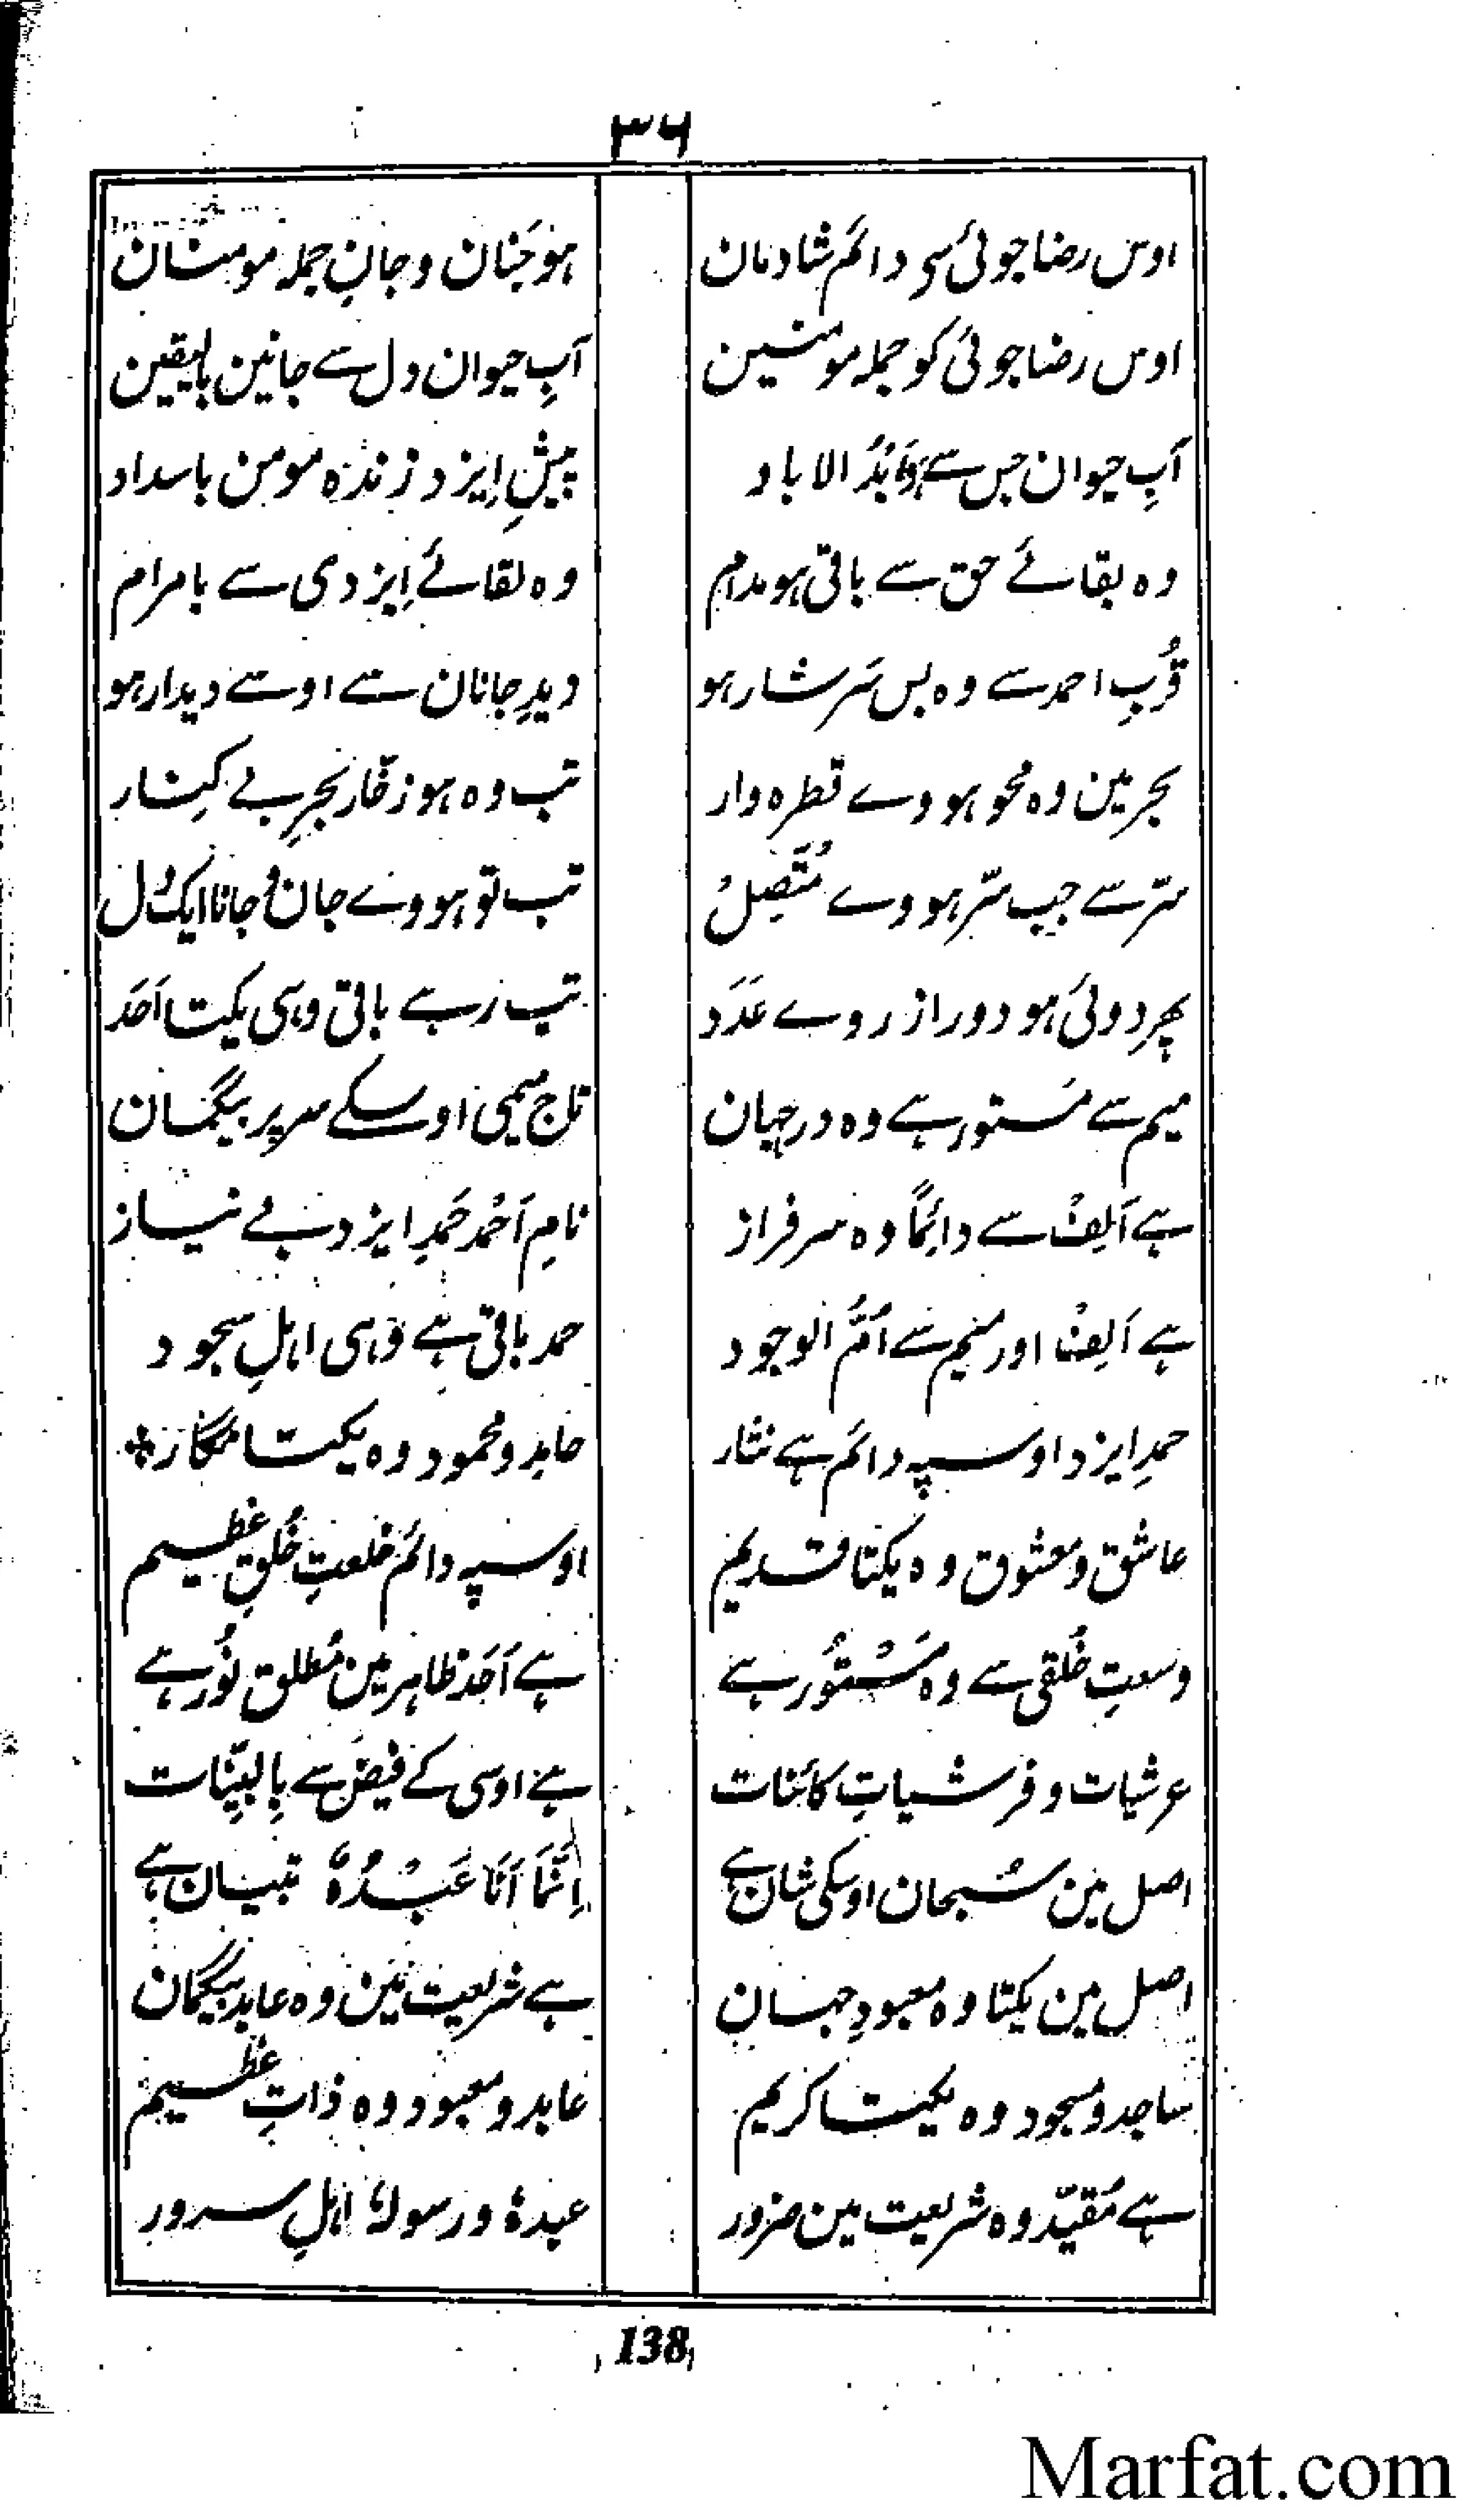 ۳۶
اوس رضا جوئی سی دائم شادمان
ہو جَنان و جانِ جملہ مومنان
اوس رضا جوئی کو جملہ مومنین
آبِ حیوان دل سے جانین بالیقین
آبِ حیوان جس سے ہو اَبَدُ الاباد
پیشِ اِیزد زندہ مومن باسداد
وہ بقائے حق سے باقی ہو مدام
وہ لقائے اِیزدی سے بامرام
قُربِ احمد سے وہ بس سَرشار ہو
دیدِ جانان سے اوسے دیدار ہو
بحر مین وہ محو ہووے قطرہ وار
تب وہ ہو زخّار بحرِ بے کِنار
سّر سے جب سّر ہووے مُتَّصِلْ
تب تو ہووے جان و جانا ایک دل
پھر دوئی ہو دور از روے عَدَد
تب رہے باقی وہی یکتا اَحَد
میم سے مَستور ہے وہ در جہان
تاج میمی اوسکے سر پر بیگمان
ہے اَلِفْ سے دائماً وہ سرفراز
نامِ اَحْمَد حَمدِ ایزد بے نیاز
ہے اَلِفْ اور میم سے اُمُّ الوجود
حمد باقی ہے وہی اہلِ سجود
حمدِ ایزد اوسپہ دائم ہے نثار
حامد و محمود وہ یکتا نگار
عاشق و معشوق وہ یکتا قدیم
اوسپہ دائم خلعتِ خُلقِ عظیم
وسعتِ خُلقی سے وہ مَسْتُوْر ہے
ہے اَحَد ظاہر مین مُطلق نُور ہے
عرشیات و فرشیاتِ کائنات
ہے اوسی کے فیض سے بِالبیّنات
اصل مین سُبحان اوسکی شان ہے
اِنَّمَا اَنَا عَبْدُہٗ تبیان ہے
اصل مین یکتا وہ معبودِ جہان
ہے شریعت مین وہ عابد بیگمان
ساجد و مسجود وہ یکتا کریم
عابد و معبود وہ ذاتِ عظیم
ہے مُقیّد وہ شریعت مین ضرور
عبدہٗ و رسولہٗ اہلِ سرور
138
Marfat.com